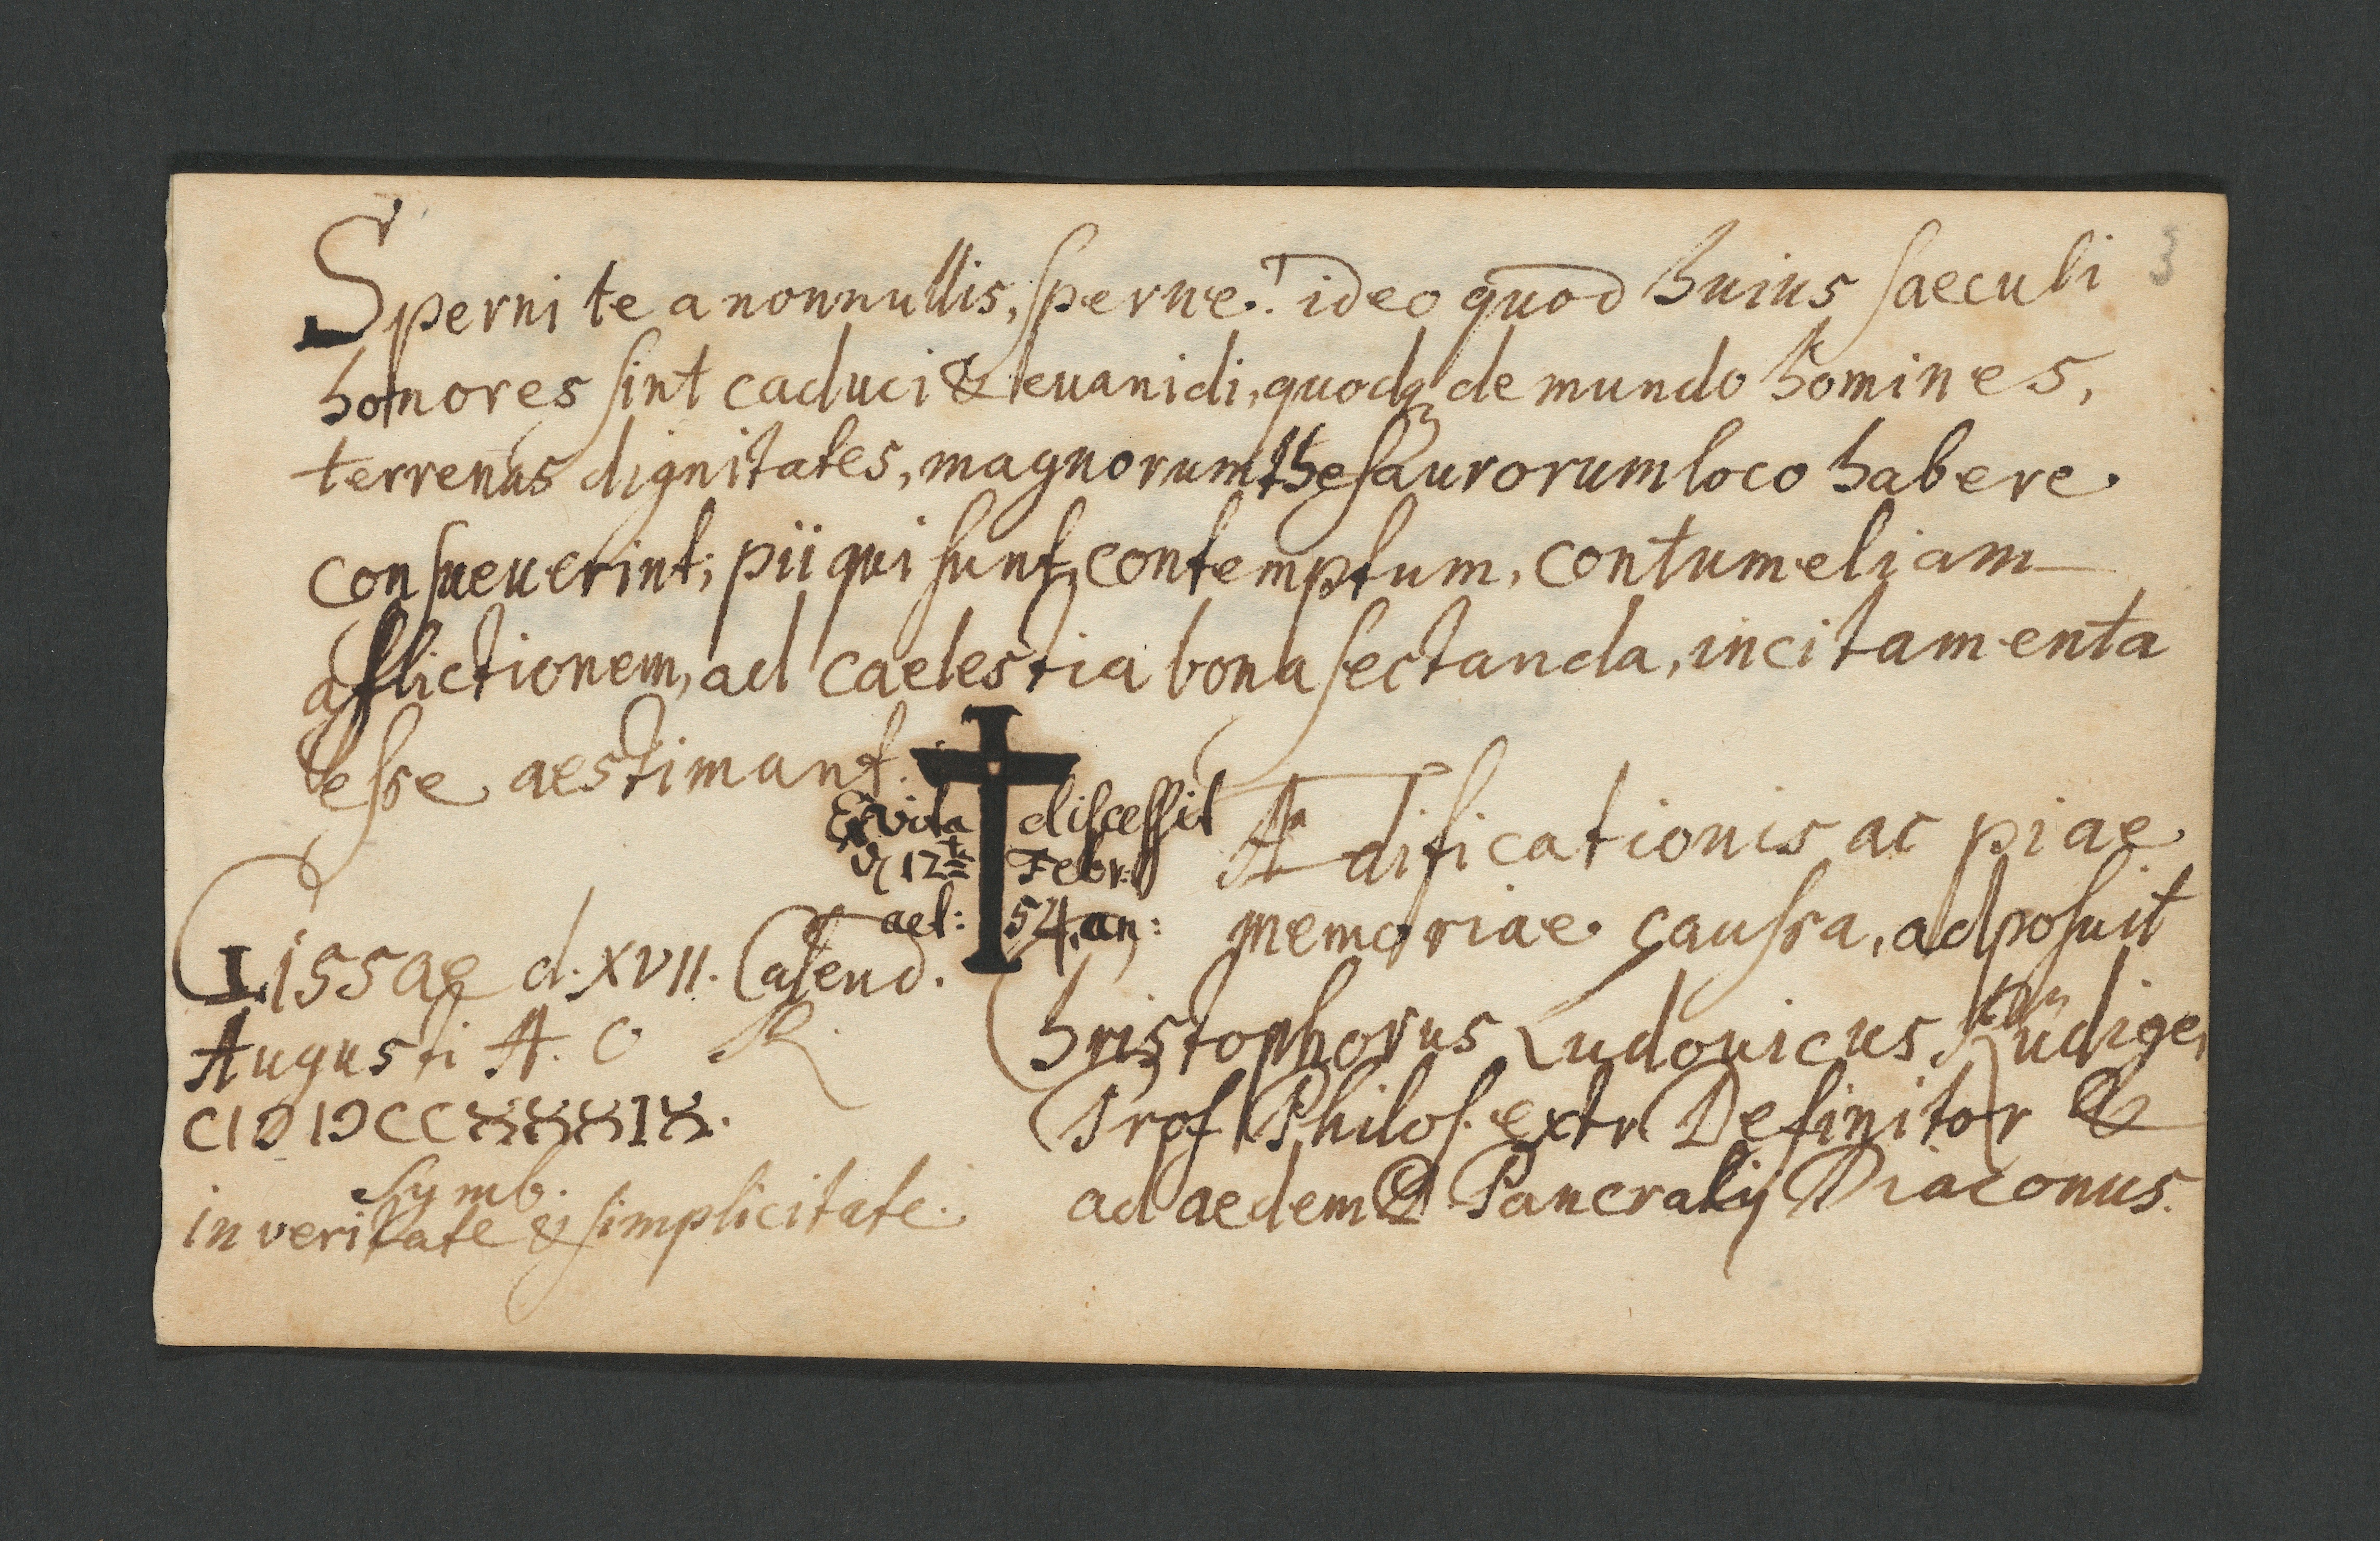 Sperni te a nonnullis, sperne! ideo quod huius saeculi
honores sint caduci & euanidi, quodq; de mundo homines,
terrenas dignitates, magnorum thesaurorum loco habere
consueuerint; pii qui sunt, contemptum, contumeliam
afflictionem, ad caelestia bona sectanda, incitamenta
esse aestimant.
E vita discessit
d 12te Febr:
aet: 54. an:
Aedificationis ac piae
memoriae caussa, adposuit
Christophorus Ludouicus Rüdiger
Prof Philos. extr Definitor &
ad aedem D. Pancratij Diaconus.
Gissae d. XVII. Calend.
Augusti A. O R
CIↃ IↃ CC XXXIX.
Symb.
in veritate & simplicitate.
3